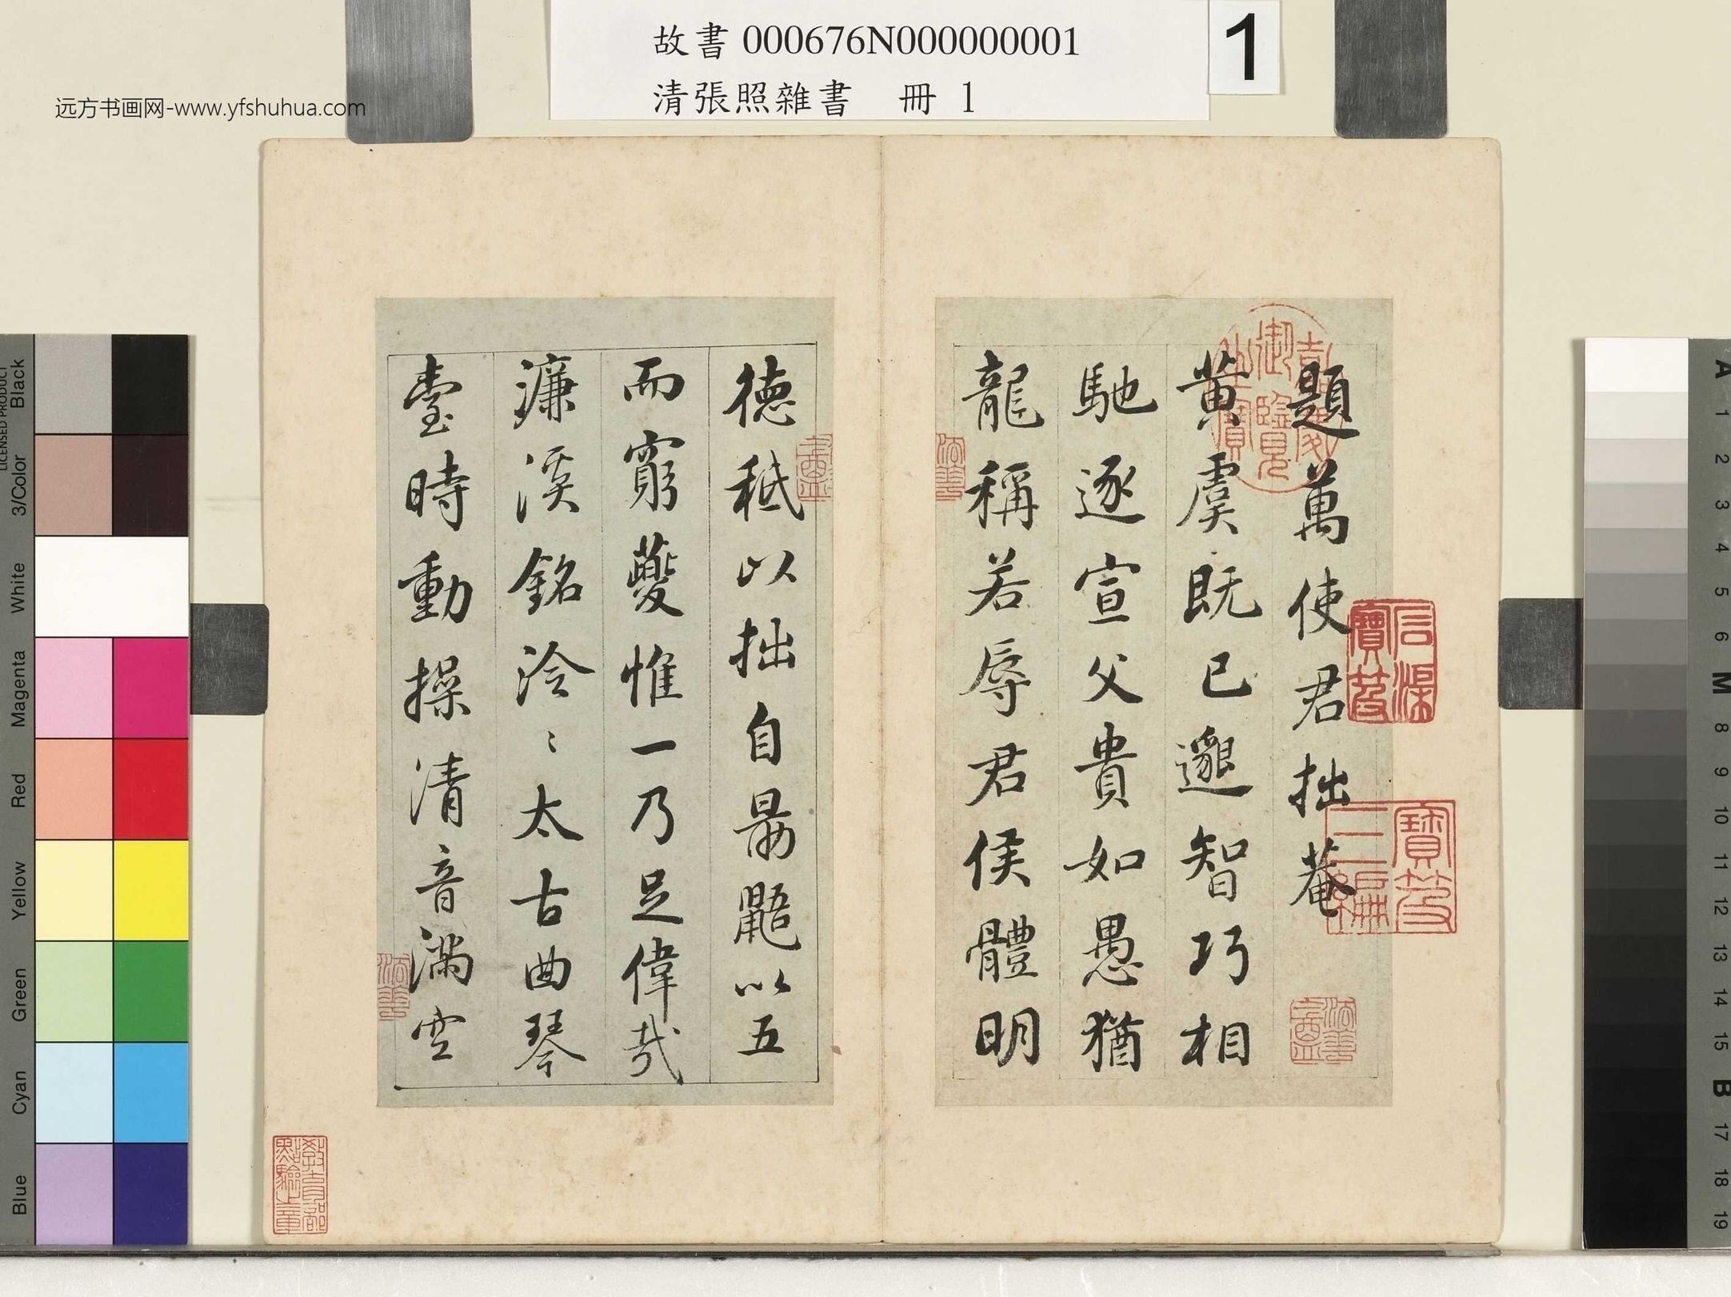 故書 000676N000000001
清張照雜書　冊 1
1
远方书画网-www.yfshuhua.com
題萬使君拙菴
黄虞既已邈智巧相
馳逐宣父貴如愚猶
龍稱若辱君侯體明
德秪以拙自勗鼯以五
而窮夔惟一乃足偉哉
濂溪銘泠〻太古曲琴
臺時動操清音滿空
寶笈三編
教育部點驗之章
LICENSED PRODUCT
Black
3/Color
White
Magenta
Red
Yellow
Green
Cyan
Blue
A
1
2
3
4
5
6
M
8
9
10
11
12
13
14
15
B
17
18
19